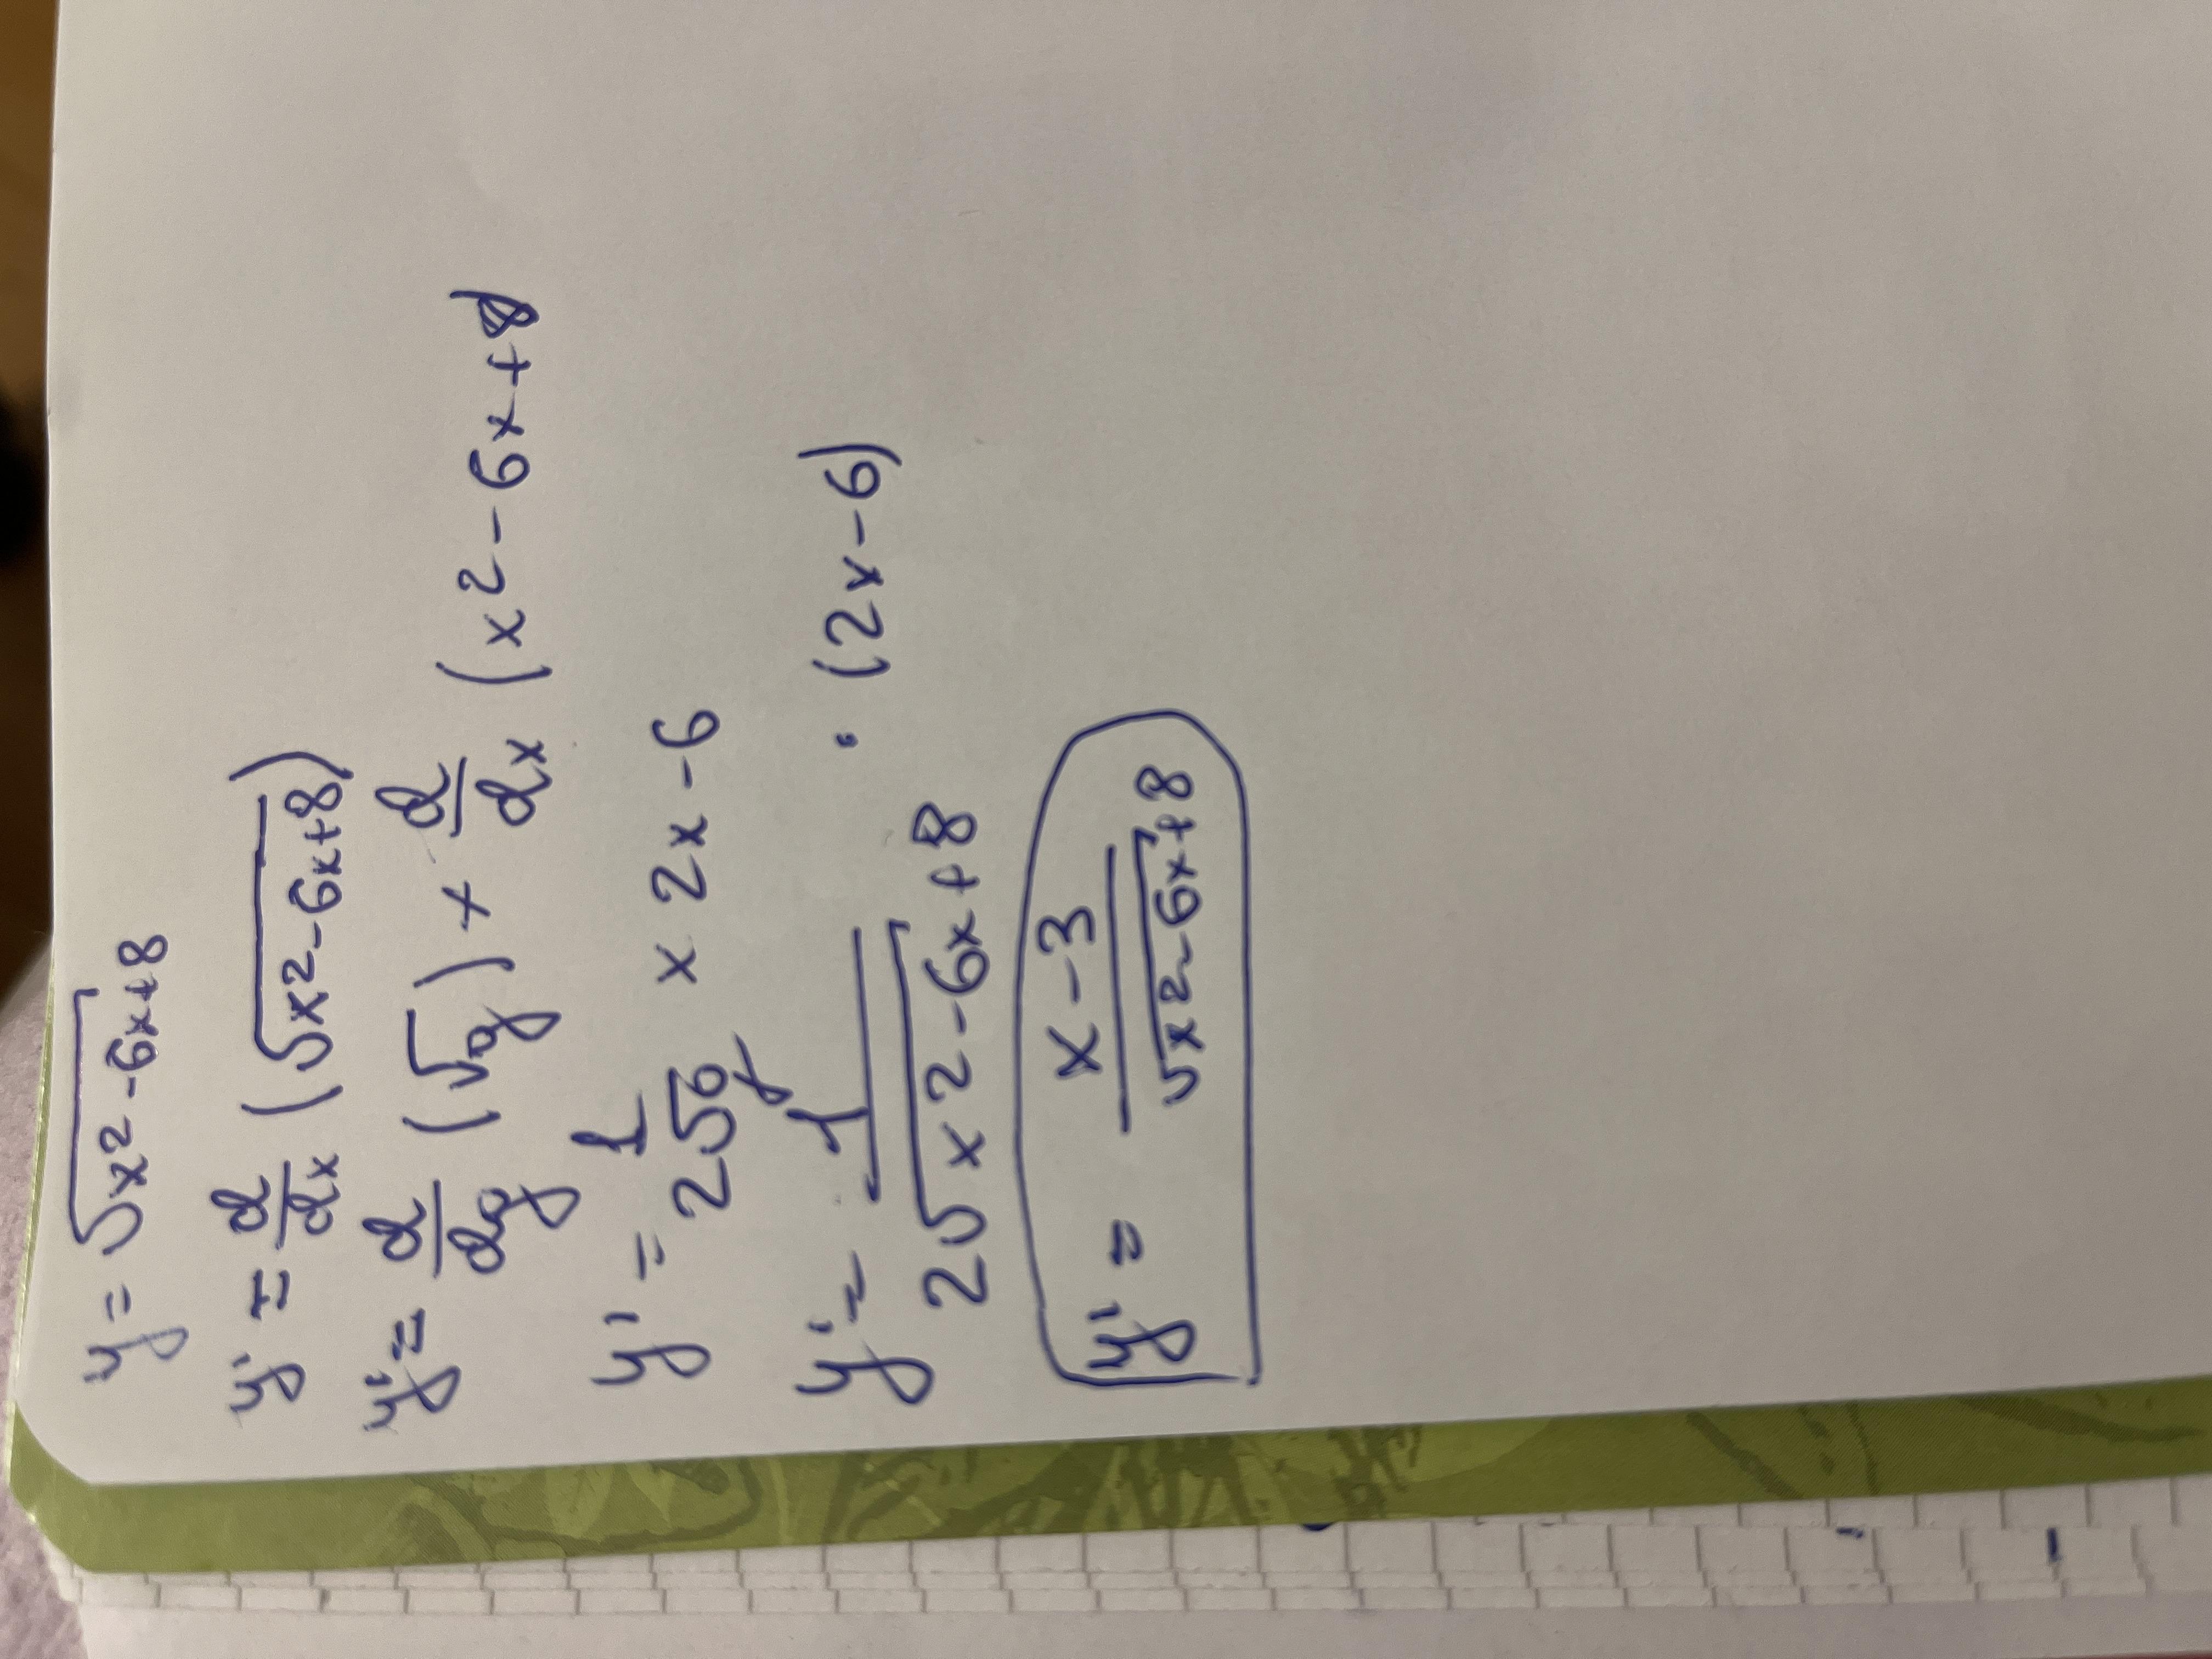 y = √x² - 6x + 8
y' = d/dx (√x² - 6x + 8)
y' = d/dg (√g) × d/dx (x² - 6x + 8)
y' = 1/2√g × 2x - 6
y' = 1/2√x² - 6x + 8 · (2x - 6)
y' = x - 3/√x² - 6x + 8